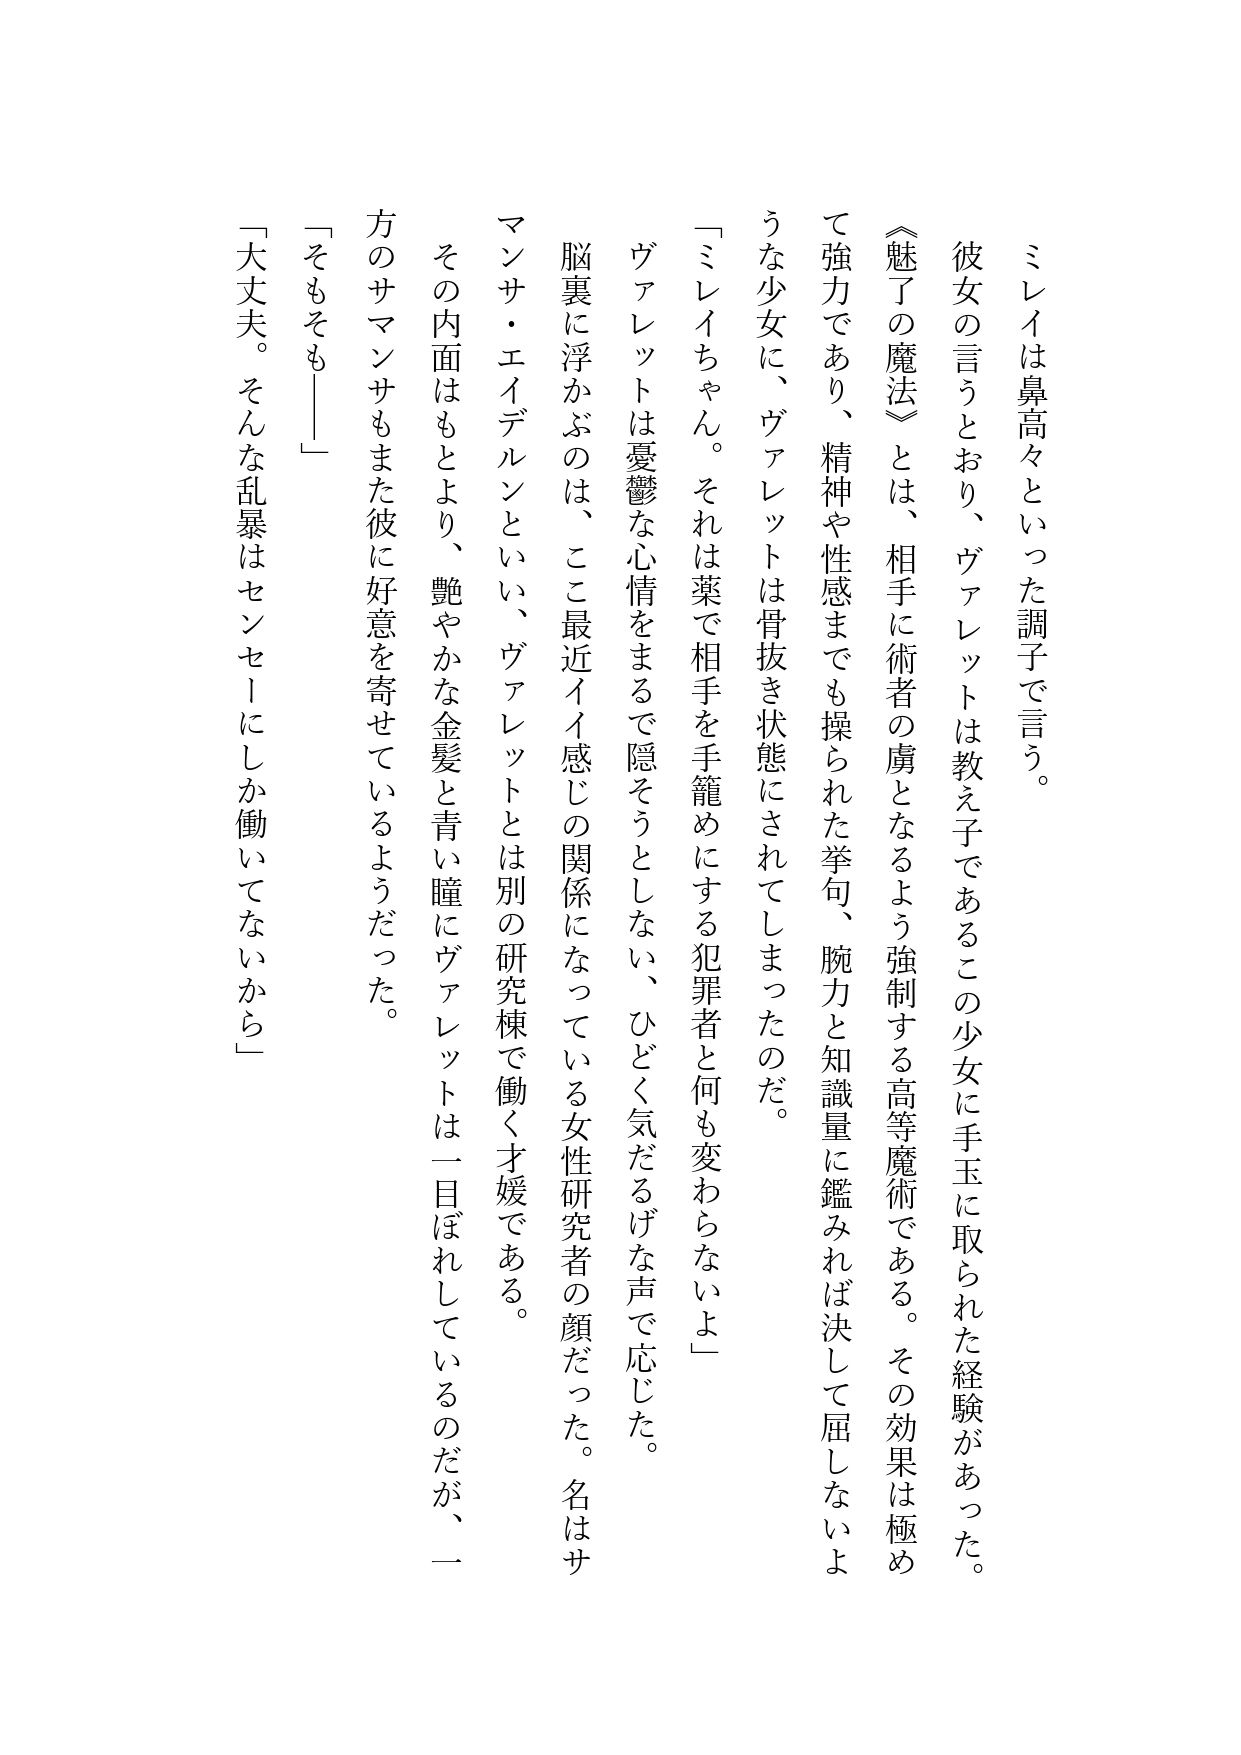 ミレイは鼻高々といった調子で言う。
彼女の言うとおり、ヴァレットは教え子であるこの少女に手玉に取られた経験があった。
《魅了の魔法》とは、相手に術者の虜となるよう強制する高等魔術である。その効果は極め
て強力であり、精神や性感までも操られた挙句、腕力と知識量に鑑みれば決して屈しないよ
うな少女に、ヴァレットは骨抜き状態にされてしまったのだ。
「ミレイちゃん。それは薬で相手を手籠めにする犯罪者と何も変わらないよ」
ヴァレットは憂鬱な心情をまるで隠そうとしない、ひどく気だるげな声で応じた。
脳裏に浮かぶのは、ここ最近イイ感じの関係になっている女性研究者の顔だった。名はサ
マンサ・エイデルンといい、ヴァレットとは別の研究棟で働く才媛である。
その内面はもとより、艶やかな金髪と青い瞳にヴァレットは一目ぼれしているのだが、一
方のサマンサもまた彼に好意を寄せているようだった。
「そもそも――」
「大丈夫。そんな乱暴はセンセーにしか働いてないから」